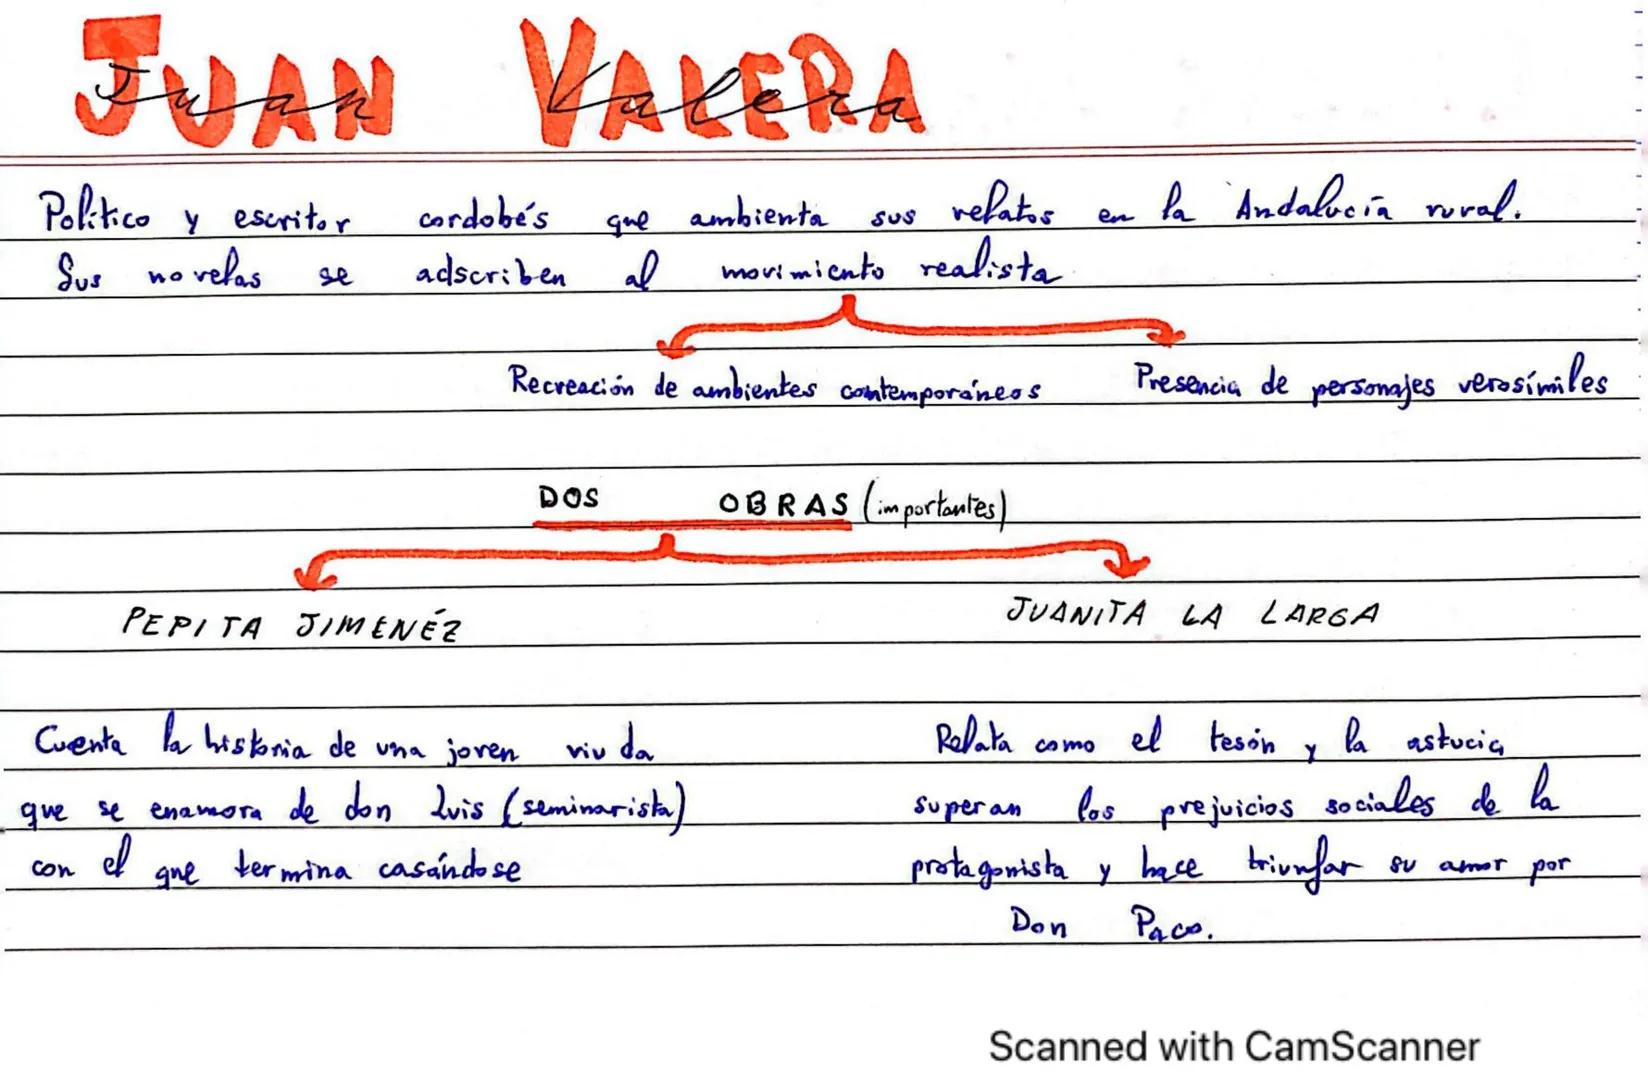 JUAN VALERA
Juan Valera
Político y escritor cordobés que ambienta sus relatos en la Andalucía rural.
Sus novelas se adscriben al movimiento realista
Recreación de ambientes contemporáneos
Presencia de personajes verosímiles
DOS OBRAS (importantes)
PEPITA JIMENÉZ
JUANITA LA LARGA
Cuenta la historia de una joven viuda
que se enamora de don Luis (seminarista)
con el que termina casándose
Relata como el tesón y la astucia
superan los prejuicios sociales de la
protagonista y hace triunfar su amor por
Don Paco.
Scanned with CamScanner